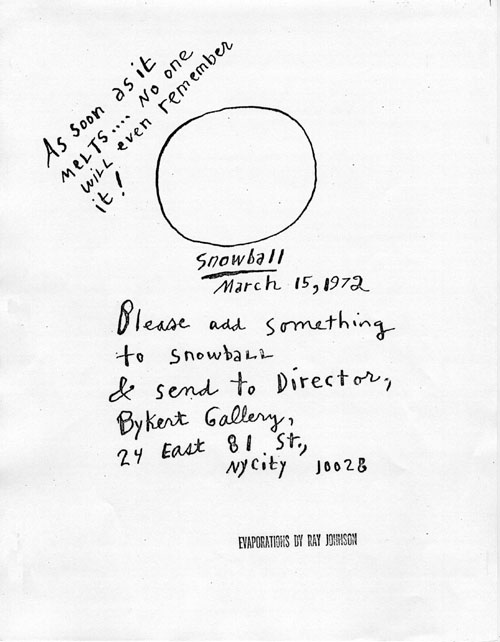 As soon as it
MeLTS.... No one
will even remember
it!
Snowball
March 15, 1972
Please add something
to snowbaLL
& send to Director,
Bykert Gallery,
24 East 81 St.,
NyCity 10028
EVAPORATIONS BY RAY JOHNSON